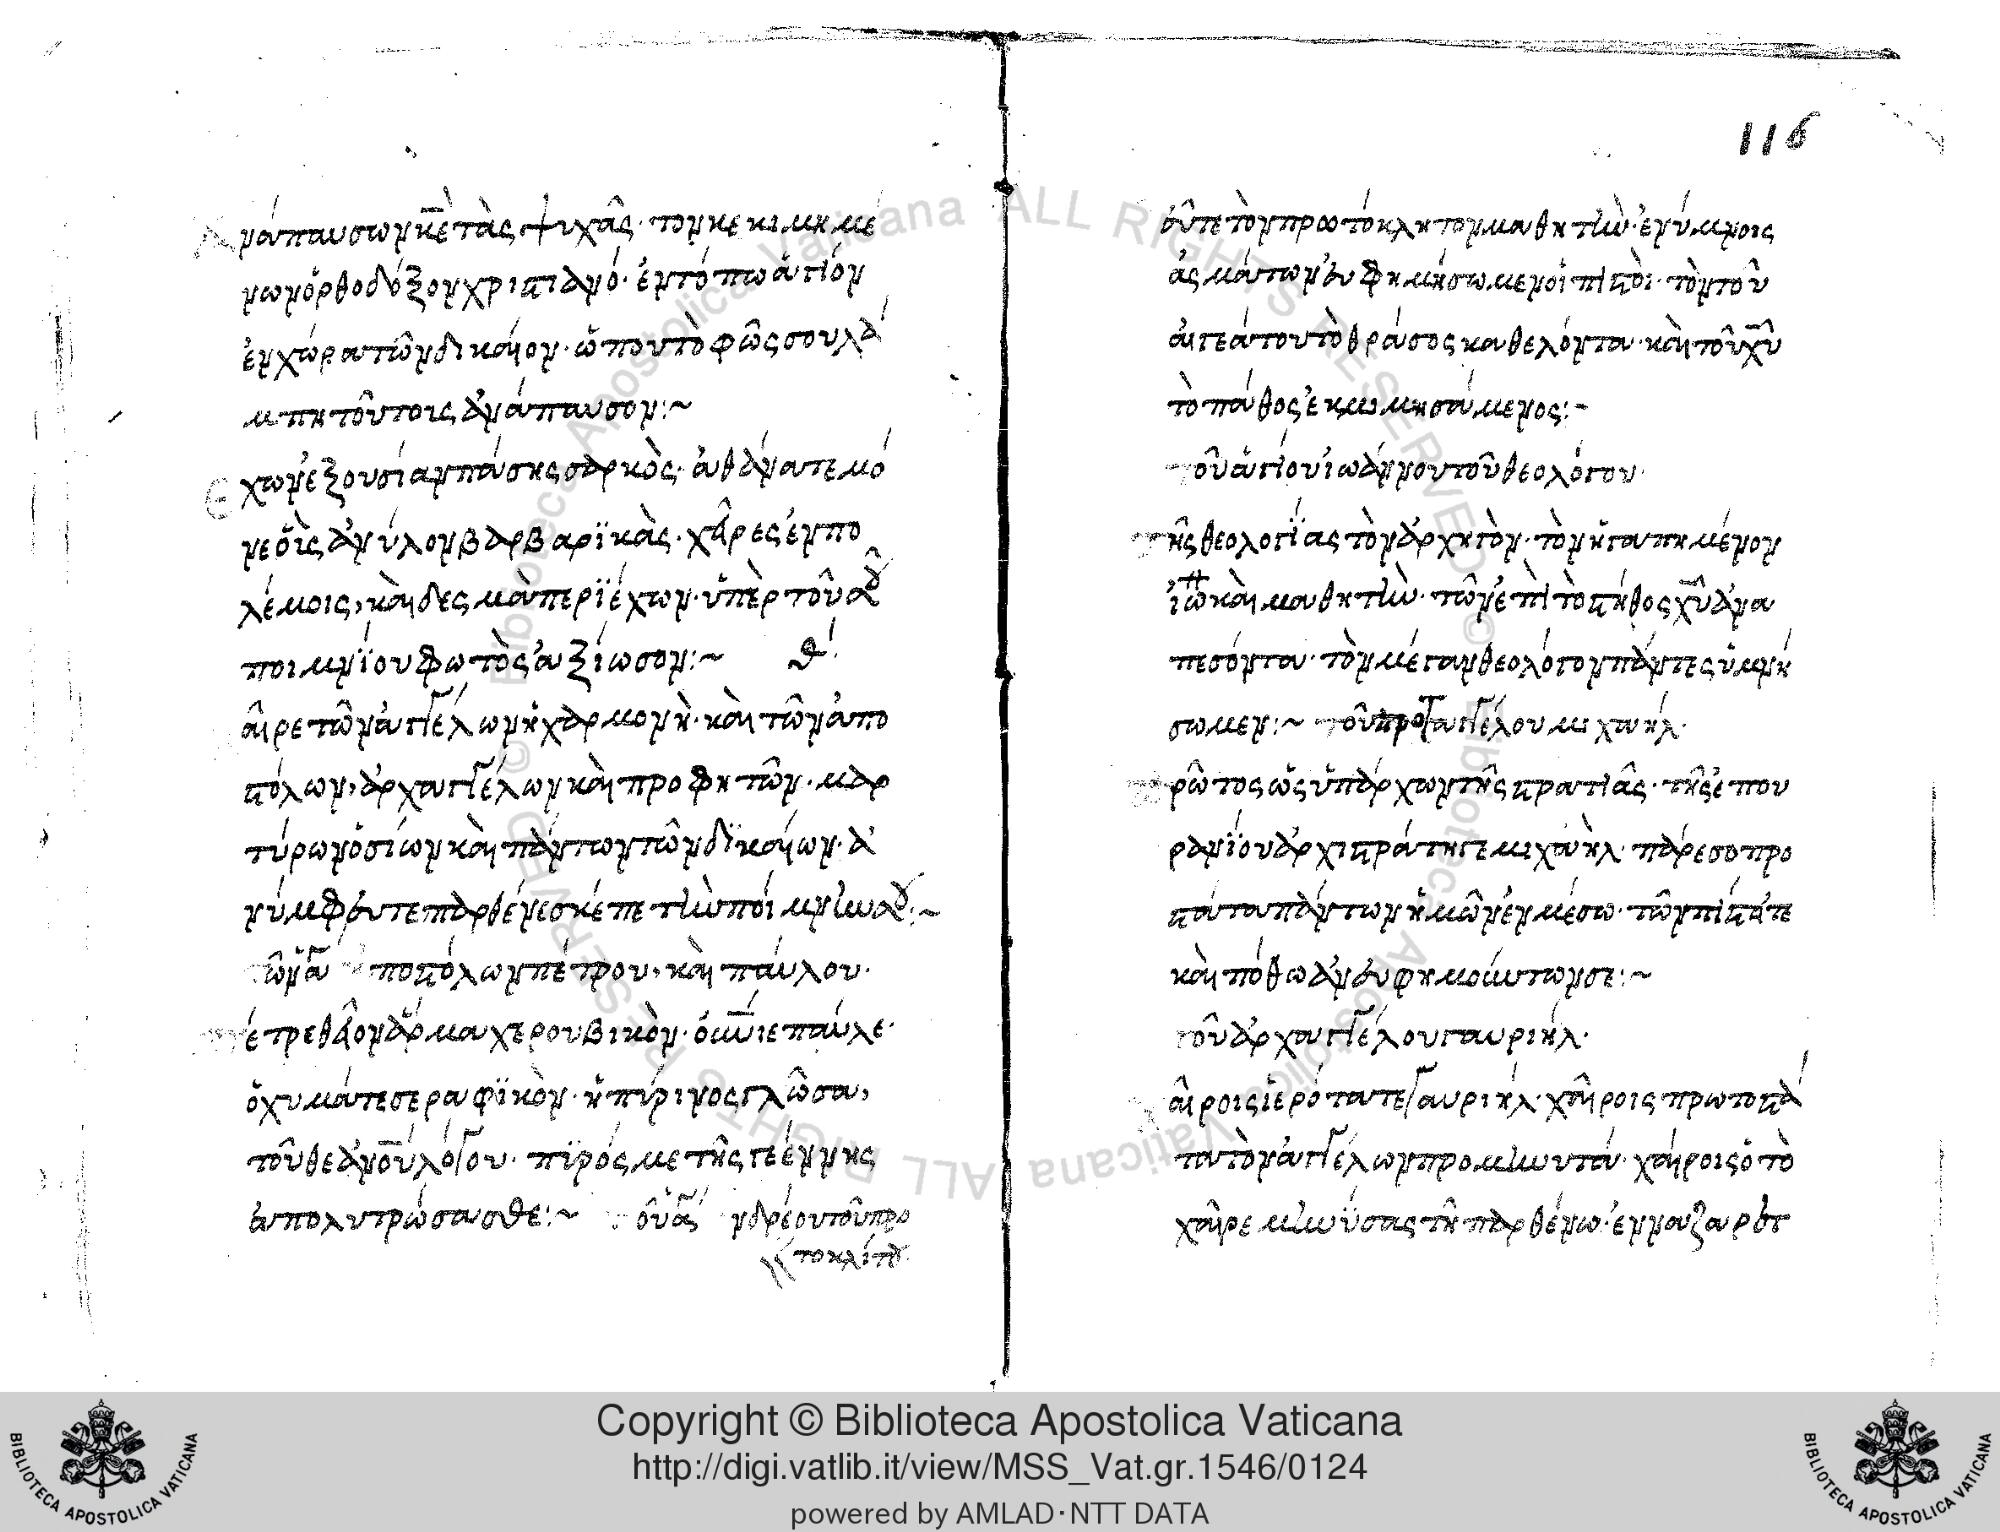 116
νάπαυσων κε τὰς ψυχάς· τον κεκιμημέ
νων ὀρθοδόξον χριστιανό· ἐν τόπω ἁγίον
ἐν χώρα τῶν δικαίον· ὥπου τὸ φῶς σου λά
μπη τούτοις ἀνάπαυσον:~
Ε χων ἐξουσίαν πάσης σαρκὸς· ἀθάνατε μό
νε οἷς ἀνύλον βαρβαρϊκὰς· χαῖρες ἐν πο
λέμοις, καὶ δεςμὰ περϊέχων· ὑπὲρ τοῦ αου
ποιμνϊου φωτὸς ἀξίωσον:~ θ'
αίρε τῶν ἀγγέλων ἡ χαρμονὴ· καὶ τῶν ἀπο
στόλων, ἀρχαγγέλων καὶ προφητῶν· μαρ
τύρων ὁσίων καὶ πάντων τῶν δϊκαίων· ἀ
νύμφευτε παρθένε σκέπε τὴν ποίμνην σου:~
ῶν ἁγ ἀποστόλων πέτρου, καὶ παύλου·
έτρε θεῖον ἅρμα χερουβικὸν· ὁ ὤνιε παύλε·
ὄχυμάτε σεραφϊκὸν· ἡ πύρινος γλῶσα,
τοῦ θεανου λόγου· πϊρός με τῆς γεέννης
ἀπολυτρώσασθε:~ οῦ ἁγ νδρέου τοῦ προ
τοκλίτου
οὖτε τὸν πρωτόκλητον μαθητὴν· ἐν ύμνοις
ἀςμάτων εὐφημήσωμεν οἱ πιστοὶ· τὸν τοῦ
αιγεάτου τὸ θράσος καθελόντα· καὶ τοῦ χυ
τὸ πάθος ἐκμιμησάμενος:~
οῦ ἁγίου ἰωάννου τοῦ θεολόγου·
ῆς θεολογίας τὸν ἀρχητὸν· τὸν ἠγαπημένον
ἰω καὶ μαθητὴν· τῶν ἐπὶ τὸ στῆθος χυ ἀνα
πεσόντα· τὸν μέγαν θεολόγον πάντες ὑμνή
σωμεν:~ οῦ προτ ἀγγέλου μιχαηλ·
ρῶτος ὡς ὑπάρχων τῆς στρατιᾶς· τῆς ἐπου
ρανϊου ἀρχιστράτηγε μιχάηλ· πάρεσο προ
στάτα πάντων ἡμῶν ἐν μέσω· τῶν πίστά τε
καὶ πόθω ἀνευφημούντων σε:~
οῦ ἀρχαγγέλου γαυριήλ·
αίροις ἱερότατε γαυριήλ· χαίροις πρωτοστά
τα τὸν ἀγγέλων προμινυτά· χαίροις ὁ τὸ
χαῖρε μινύσας τῆ παρθένω· ἐν ναζαρὲτ
Copyright © Biblioteca Apostolica Vaticana
http://digi.vatlib.it/view/MSS_Vat.gr.1546/0124
powered by AMLAD·NTT DATA
BIBLIOTECA APOSTOLICA VATICANA
BIBLIOTECA APOSTOLICA VATICANA